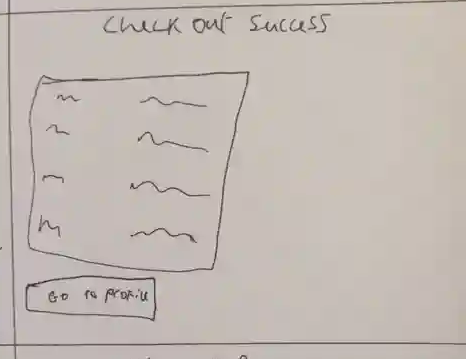 Check out Success
Go to profile